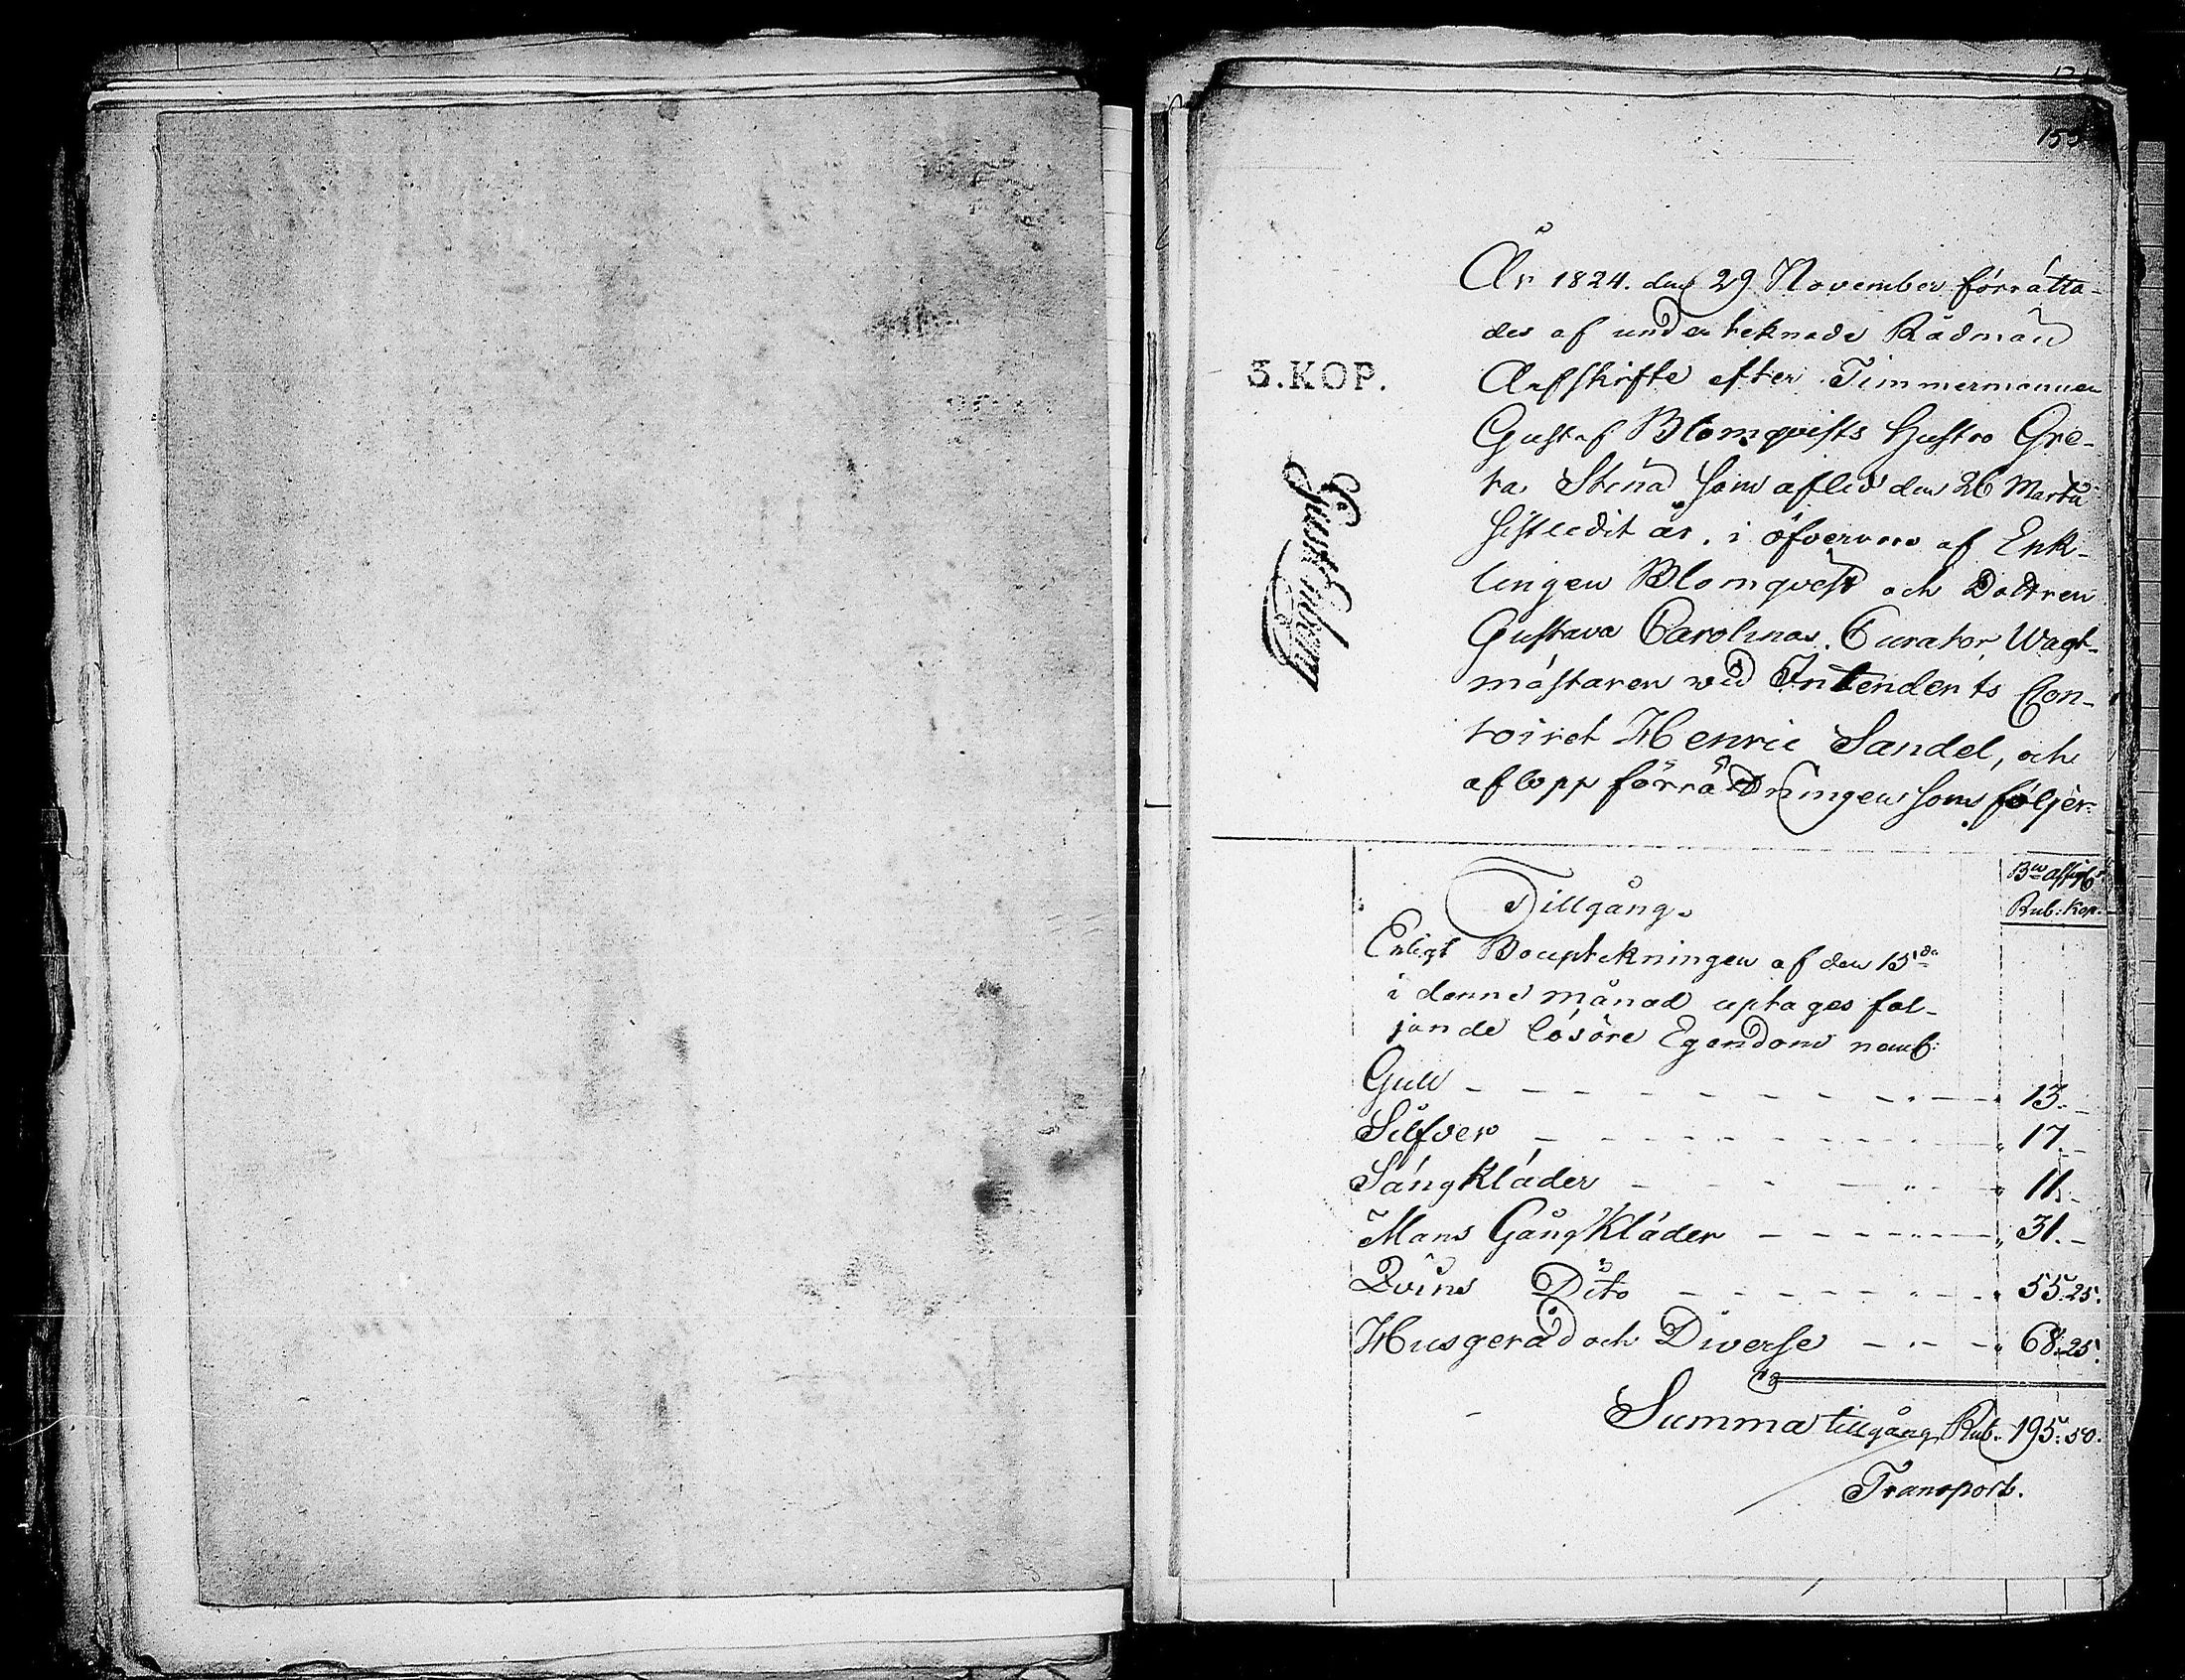 År 1824. den 29 November förrätta-
des af underteknade Rådmän
Arfskifte efter Timmermannen
Gustaf Blomqvists Hustro Gre-
ta Stina som afled den 26 Martii
sistledit år, i öfvervaro af Enk-
lingen Blomqvist och Dottren
Gustava Carolinas Curator, Wagt-
mästaren vid Intendents Con-
toiret Henric Sandel, och
aflopp förrättningen som följer:
3. KOP.
Tillgång.
Bco assigts
Rub: Kop:
Enligt Bouptekningen af den 15de
i denne månad uptages föl-
jande lösöre Egendom neml:
Gull 13.
Silfver 17.
Sängkläder 11.
Mans Gångkläder 31.
Qvins Dito 55.25.
Husgeråd och Diverse 68.25.
Summa tillgång Rub. 195.50.
Transport.